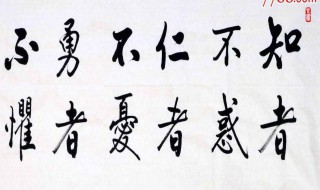 知者
不惑
仁者
不憂
勇者
不懼